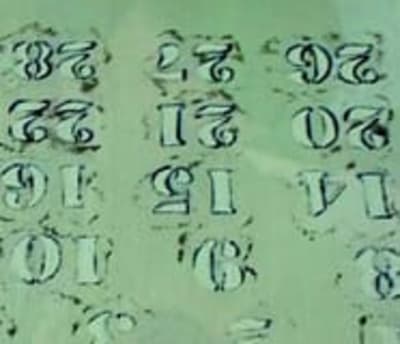 26 27 28
20 21 22
14 15 16
8 9 10